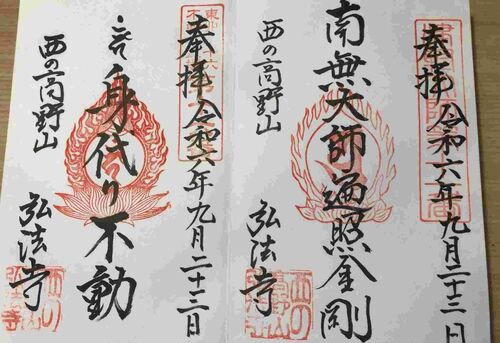 奉拝 令和六年九月二十三日
南無大師遍照金剛
西の高野山
弘法寺
奉拝 令和六年九月二十三日
身代り不動
西の高野山
弘法寺